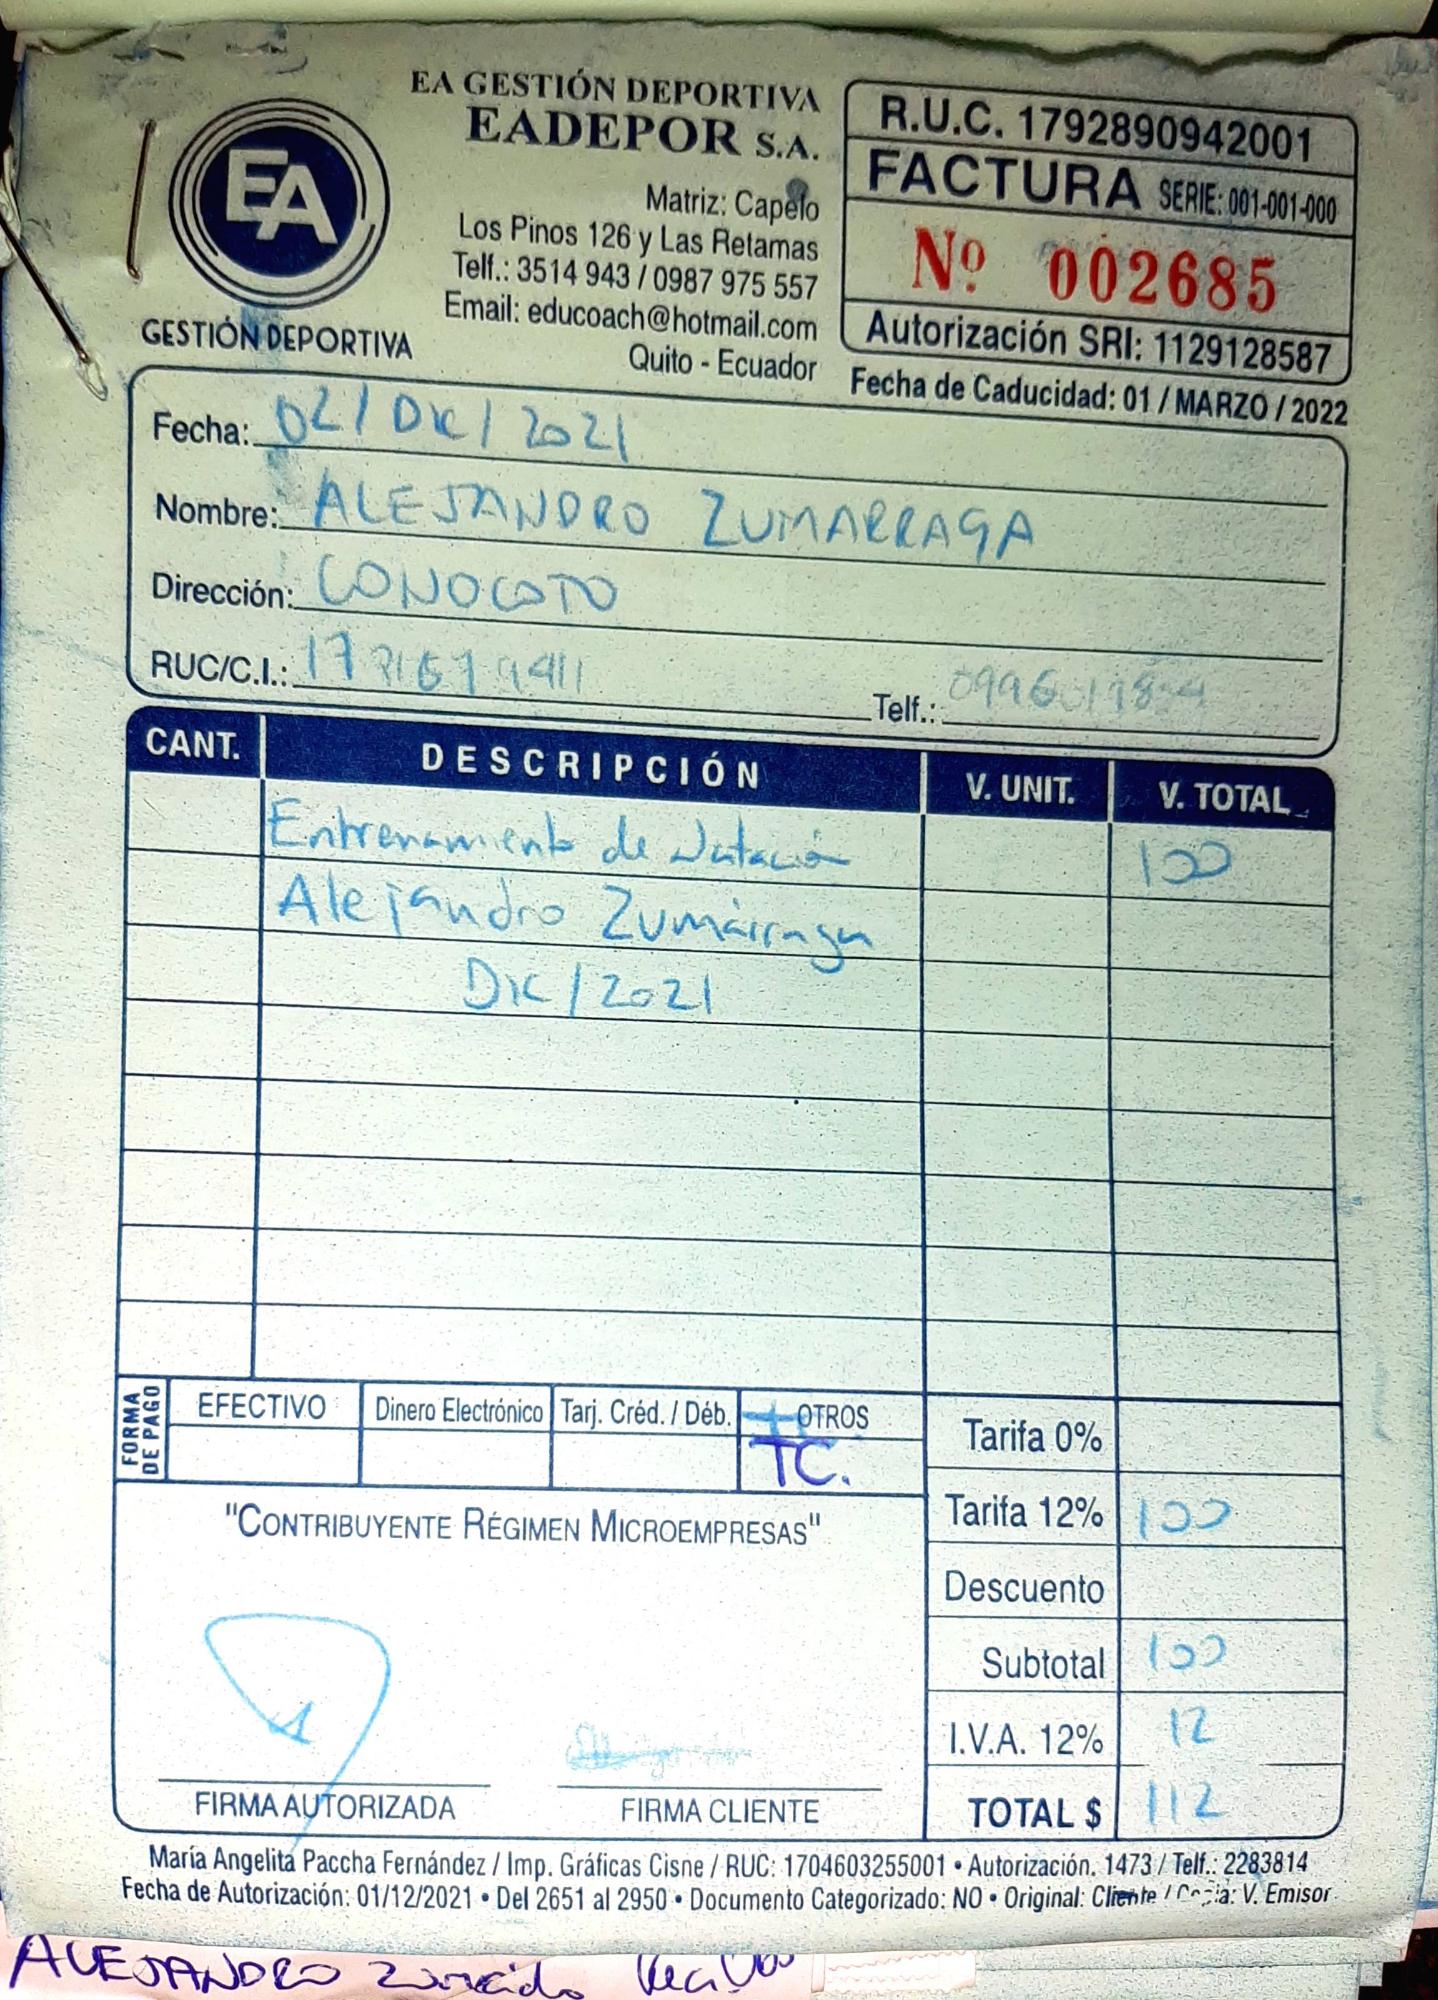 EA GESTIÓN DEPORTIVA
EADEPOR S.A.
EA
GESTIÓN DEPORTIVA
Matriz: Capelo
Los Pinos 126 y Las Retamas
Telf.: 3514 943 / 0987 975 557
Email: educoach@hotmail.com
Quito - Ecuador
R.U.C. 1792890942001
FACTURA SERIE: 001-001-000
Nº 002685
Autorización SRI: 1129128587
Fecha de Caducidad: 01 / MARZO / 2022
Fecha: 02 / DIC / 2021
Nombre: ALEJANDRO ZUMARRAGA
Dirección: CONOCOTO
RUC/C.I.:
Telf.:
CANT. DESCRIPCIÓN V. UNIT. V. TOTAL
Entrenamiento de Natación 100
Alejandro Zumárraga
DIC / 2021
FORMA DE PAGO
EFECTIVO Dinero Electrónico Tarj. Créd. / Déb. OTROS
TC.
Tarifa 0%
Tarifa 12% 100
Descuento
Subtotal 100
I.V.A. 12% 12
TOTAL $ 112
"CONTRIBUYENTE RÉGIMEN MICROEMPRESAS"
FIRMA AUTORIZADA FIRMA CLIENTE
María Angelita Paccha Fernández / Imp. Gráficas Cisne / RUC: 1704603255001 • Autorización. 1473 / Telf.: 2283814
Fecha de Autorización: 01/12/2021 • Del 2651 al 2950 • Documento Categorizado: NO • Original: Cliente / Copia: V. Emisor
ALEJANDRO